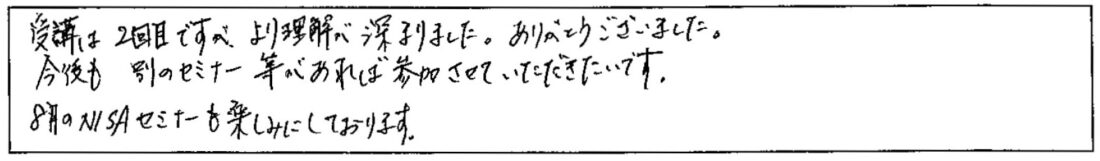 受講は2回目ですが、より理解が深まりました。ありがとうございました。
今後も 別のセミナー等があれば参加させていただきたいです。
8月のNISAセミナーも楽しみにしております。